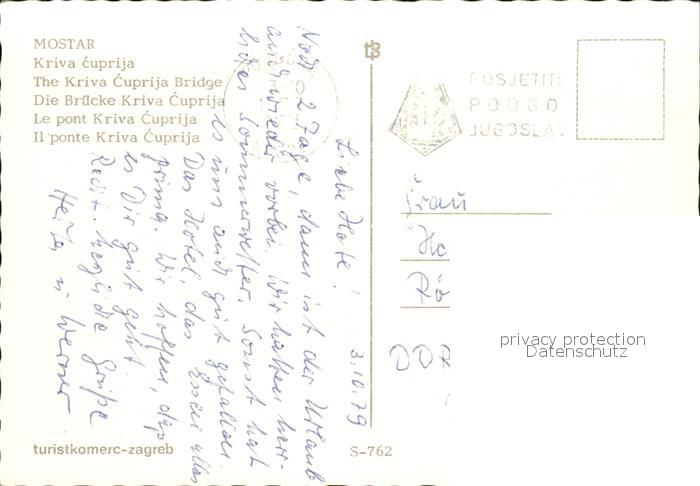 MOSTAR
Kriva ćuprija
The Kriva Ćuprija Bridge
Die Brücke Kriva Ćuprija
Le pont Kriva Ćuprija
Il ponte Kriva Ćuprija
Liebe Käte!
3.10.79
Noch 2 Tage, dann ist der Urlaub
auch wieder vorbei. Wir hatten herr-
liches Sommerwetter. Sonst hat
es uns auch gut gefallen.
Das Hotel, das Essen alles
prima. Wir hoffen, daß
es Dir gut geht.
Recht herzliche Grüße
Herta u. Werner
POSJETITE
PODGO
JUGOSLAV
Frau
DDR
privacy protection
Datenschutz
turistkomerc-zagreb
S-762